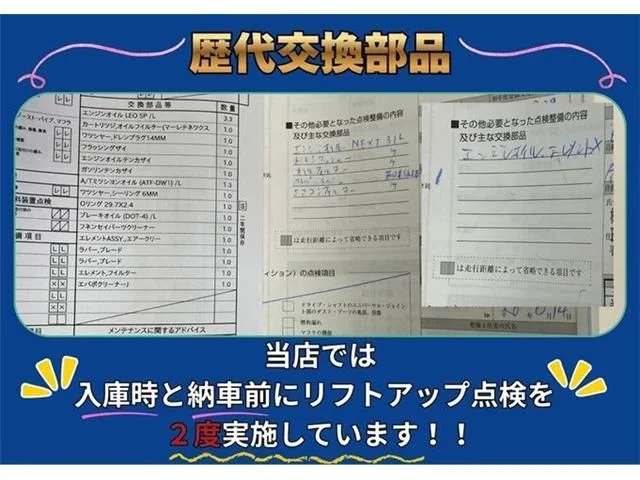 歴代交換部品
交換部品等 数量
エンジンオイル LEO SP /L 3.3
カートリッジ,オイルフィルター(マーレテネツクス 1.0
ワツシヤー,ドレンプラグ14MM 1.0
フラッシングザイ 1.0
エンジンオイルテンカザイ 1.0
ガソリンテンカザイ 1.0
A/Tミツシヨンオイル (ATF-DW1) /L 1.3
ワツシヤー,シーリング 6MM 1.0
Oリング 29.7X2.4 1.0
ブレーキオイル (DOT-4) /L 1.0
フネンセイパーツクリーナー 1.0
エレメントASSY.,エアークリー 1.0
ラバー,ブレード 1.0
ラバー,ブレード 1.0
エレメント,フイルター 1.0
エバポクリーナーJ 1.0
メンテナンスに関するアドバイス
料装置点検
備項目
二年間保存
■その他必要となった点検整備の内容
及び主な交換部品
は走行距離によって省略できる項目です
の点検項目
ドライブ・シャフトのユニバーサル・ジョイン
ト部のダスト・ブーツの亀裂、損傷
燃料漏れ
マフラの機能
■その他必要となった点検整備の内容
及び主な交換部品
は走行距離によって省略できる項目です
当店では
入庫時と納車前にリフトアップ点検を
２度実施しています！！